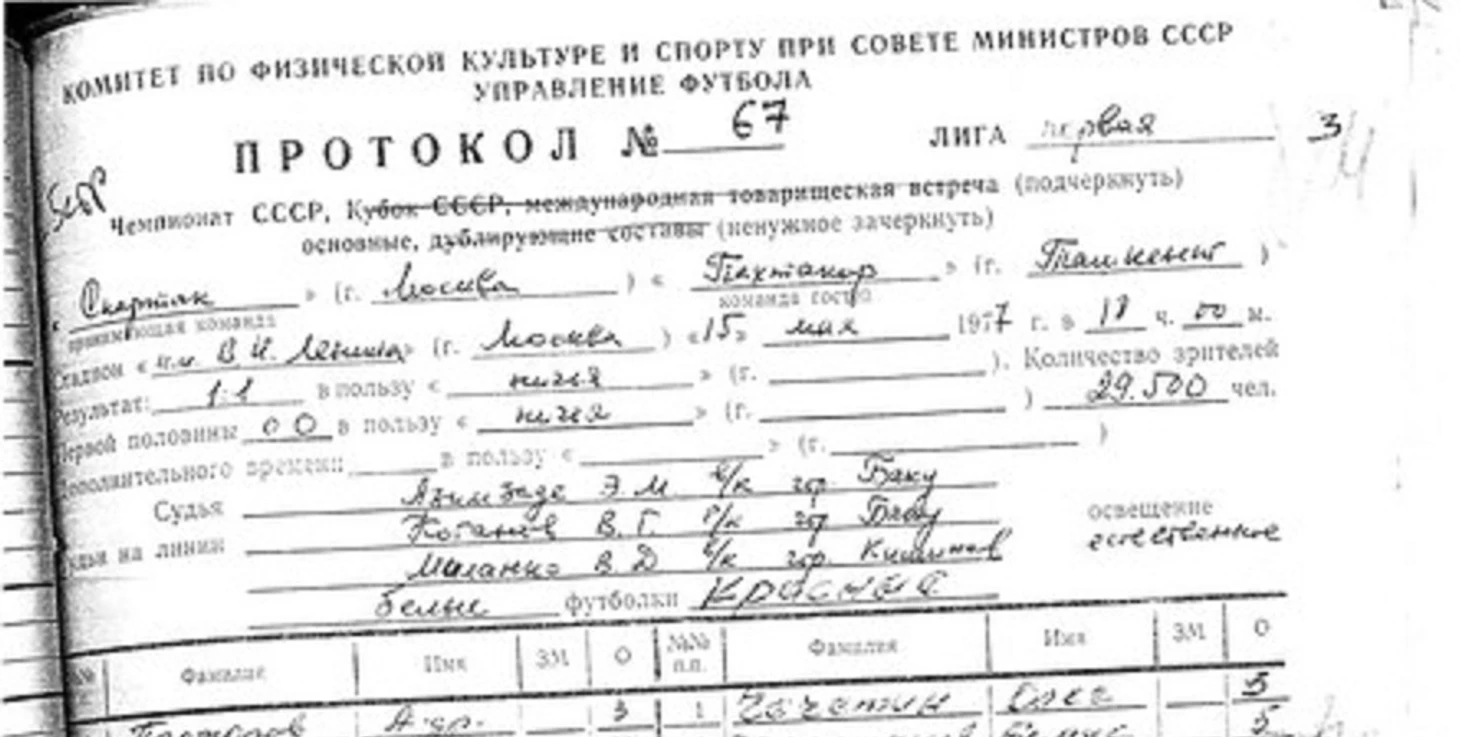 КОМИТЕТ ПО ФИЗИЧЕСКОЙ КУЛЬТУРЕ И СПОРТУ ПРИ СОВЕТЕ МИНИСТРОВ СССР
УПРАВЛЕНИЕ ФУТБОЛА
ПРОТОКОЛ № 67 ЛИГА первая 3
Чемпионат СССР, Кубок СССР, международная товарищеская встреча (подчеркнуть)
основные, дублирующие составы (ненужное зачеркнуть)
« Спартак » (г. Москва ) « Пахтакор » (г. Ташкент )
принимающая команда команда гостей
Стадион « им. В.И. Ленина» (г. Москва ) «15» мая 1977 г. в ч. 00 м.
Результат: 1:1 в пользу « ничья » (г. ). Количество зрителей
Первой половины 0 0 в пользу « ничья » (г. ) 29.500 чел.
Дополнительного времени в пользу « » (г. )
Судья Азимзаде Э.М. гор. Баку
Судьи на линии В.Г. гор Баку освещение
Миланко В.Д. гор. Кишинев естественное
белые футболки красные
№ Фамилия Имя ЗМ О №№ п.п. Фамилия Имя ЗМ О
Прохоров 3 1 Олег 3
5